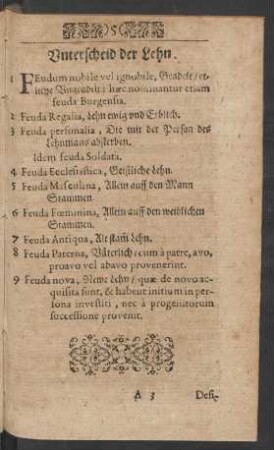 5
Vnterscheid der Lehn.
1 FEudum nobile vel ignobile, Geadelt / et-
liche Vngeadelt: hæc nominantur etiam
feuda Burgensia.
2 Feuda Regalia, Lehn ewig vnd Erblich.
3 Feuda personalia, Die mit der Person des
Lehnmans absterben.
Idem feuda Soldata.
4 Feuda Ecclesiastica, Geistliche Lehn.
5 Feuda Masculina, Allein auff den Mann
Stammen.
6 Feuda Fœminina, Allein auff den weiblichen
Stammen.
7 Feuda Antiqua, Alt stam̃ Lehn.
8 Feuda Paterna, Väterlich / cum à patre, avo,
proavo vel abavo provenerint.
9 Feuda nova, Newe Lehn / quæ de novo ac-
quisita sunt, & habent initium in per-
sona investiti, nec à progenitorum
successione provenit.
A 3 Desi-